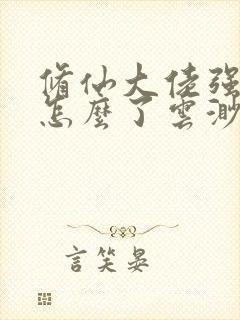 脩仙大佬强
怎麼了雲渺
言笑晏